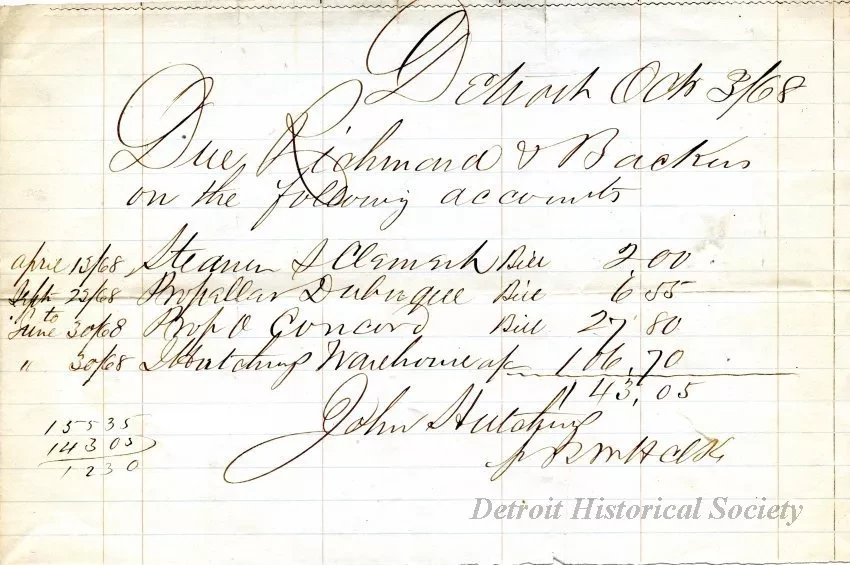 Detroit Oct 3/68
Due Richmond & Backus
on the following accounts
April 13/68 Steamer J Clement Bill 2 00
Sept 23/68 Propellar Dubuque Bill 6 55
to
June 30/68 Prop O Concord Bill 27 80
" 30/68 Hutchings Warehouse a/c 106,70
143,05
John Hutchings
15535
14305
1230
Detroit Historical Society